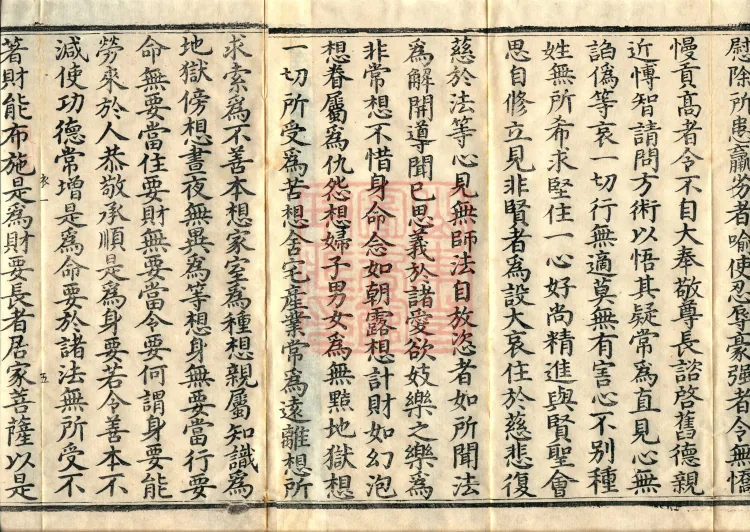 慰除所患羸劣者喻使忍辱豪强者令無憍
慢貢高者令不自大奉敬尊長諮啓舊德親
近博智請問方術以悟其疑常爲直見心無
諂僞等哀一切行無適莫無有害心不別種
姓無所希求堅住一心好尚精進與賢聖會
思自修立見非賢者爲設大哀住於慈悲復
慈於法等心見無師法自放恣者如所聞法
爲解開導聞已思義於諸愛欲妓樂之樂爲
非常想不惜身命念如朝露想計財如幻泡
想眷屬爲仇怨想婦子男女爲無點地獄想
一切所受爲苦想舍宅産業常爲遠離想所
求索爲不善本想家室爲種想親屬知識爲
地獄傍想晝夜無異爲等想身無要當行要
命無要當住要財無要當令要何謂身要能
勞來於人恭敬承順是爲身要若令善本不
衣一 五
減使功德常增是爲命要於諸法無所受不
著財能布施是爲財要長者居家菩薩以是